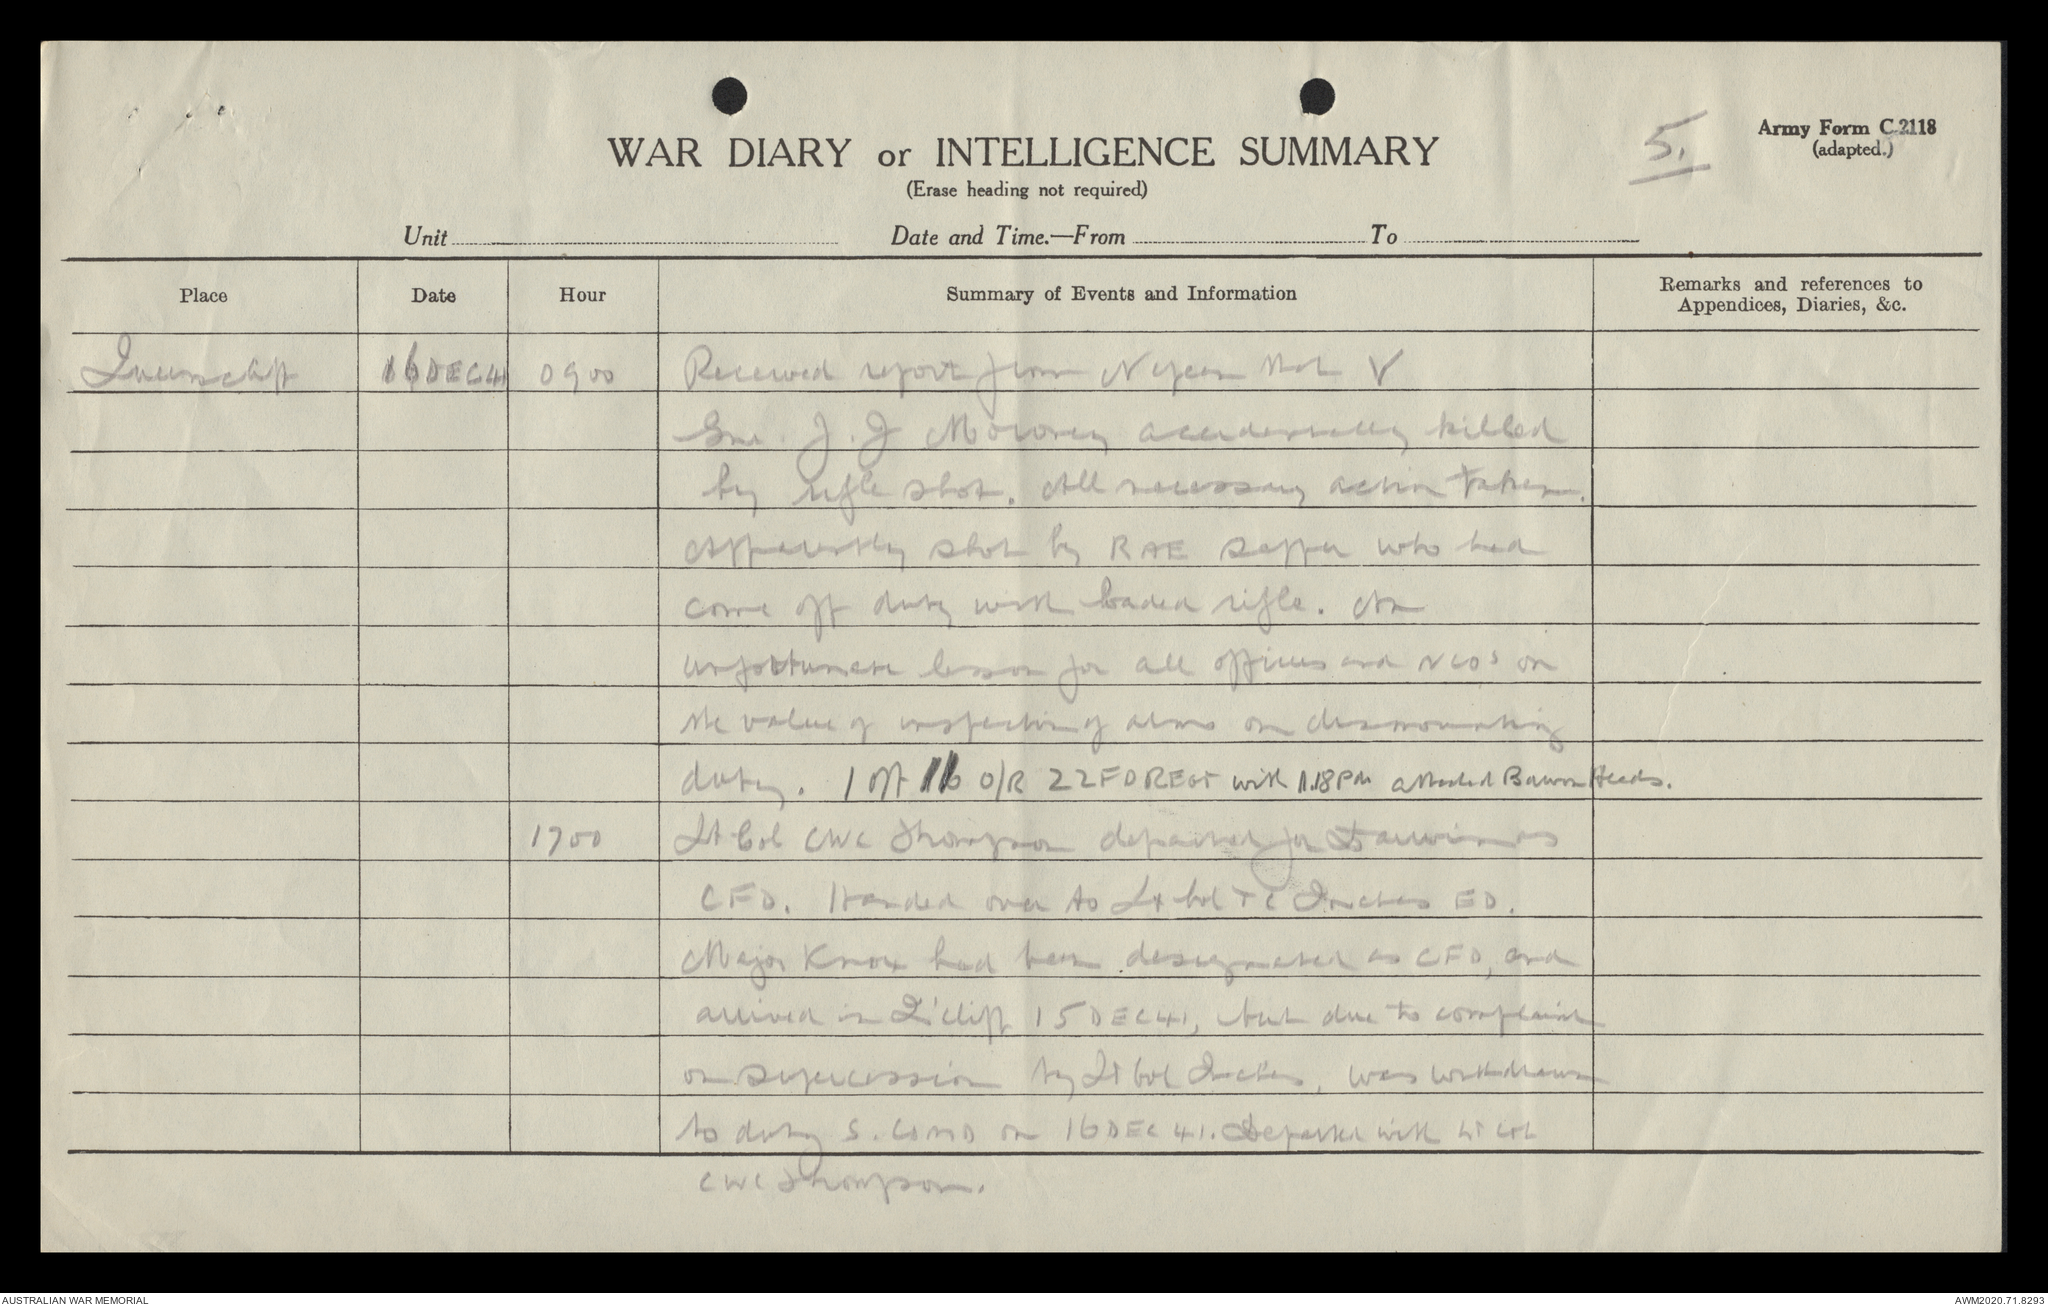 5.
Army Form C.2118
(adapted.)
WAR DIARY or INTELLIGENCE SUMMARY
(Erase heading not required)
Unit Date and Time.—From To
Place Date Hour Summary of Events and Information Remarks and references to Appendices, Diaries, &c.
Queenscliff 16 DEC 41 0900 Received report from Nepean that V
Gnr. J. J Moroney accidentally killed
by rifle shot. All necessary action taken.
Apparently shot by RAE Sapper who had
come off duty with loaded rifle. An
unfortunate lesson for all officers and NCOs on
the value of inspecting arms on dismounting
duty. 1 off 16 O/R 22 FD REGT with 1.18 PM attached Barwon Heads.
1700 Lt Col CWC Thompson departed for Darwin as
CFD. Handed over to Lt Col T C Inches ED.
Major Knox had been designated as CFD, and
arrived in Q'cliff 15 DEC 41, but due to complaint
on supercession by Lt Col Inches, was withdrawn
to duty S. COMD on 16 DEC 41. Departed with Lt Col
CWC Thompson.
AUSTRALIAN WAR MEMORIAL AWM2020.71.8293